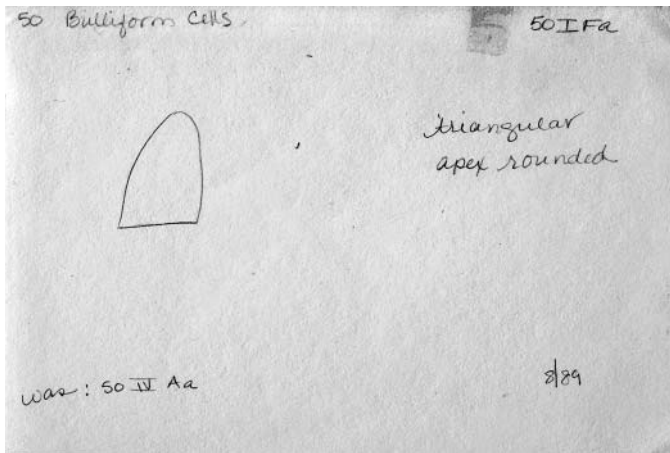 50 Bulliform Cells
50 I Fa
triangular
apex rounded
was : 50 IV Aa
8/89